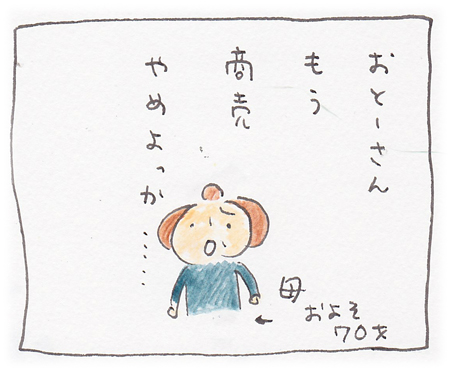 おとーさん
もう
商売
やめよっか……
母
およそ
70才